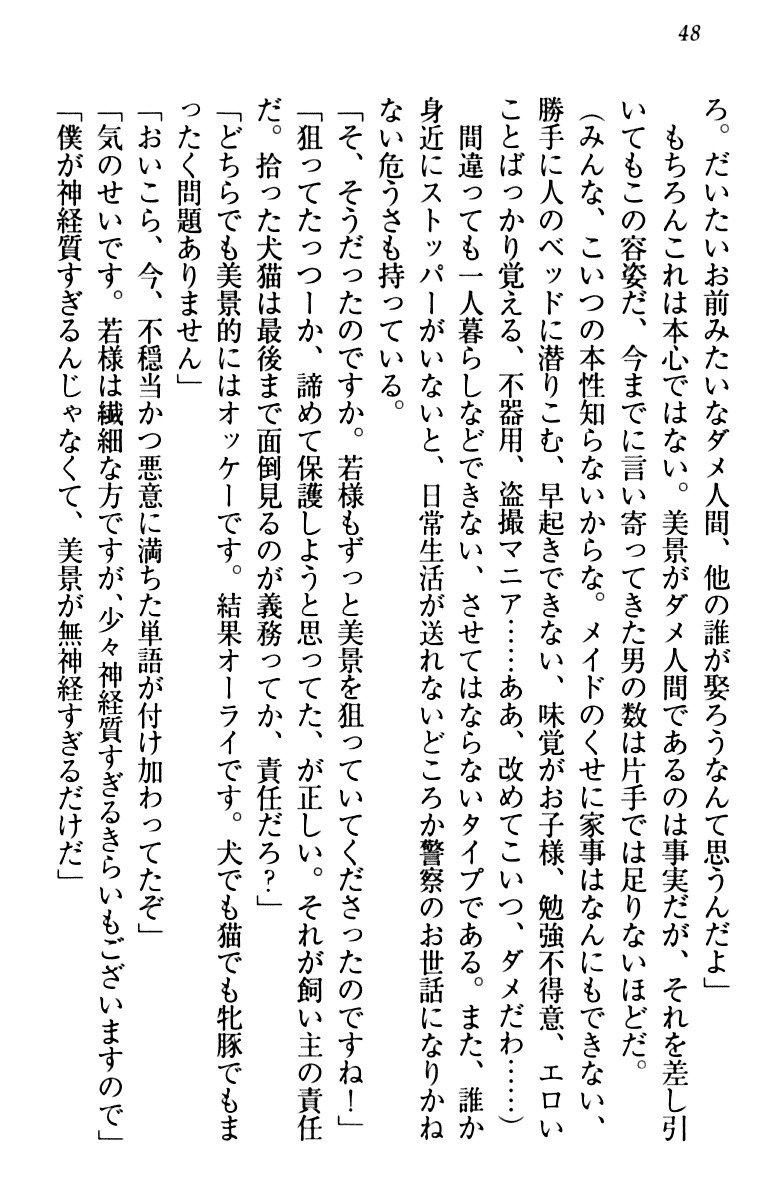 48
ろ。だいたいお前みたいなダメ人間、他の誰が娶ろうなんて思うんだよ」
もちろんこれは本心ではない。美景がダメ人間であるのは事実だが、それを差し引
いてもこの容姿だ、今までに言い寄ってきた男の数は片手では足りないほどだ。
（みんな、こいつの本性知らないからな。メイドのくせに家事はなんにもできない、
勝手に人のベッドに潜りこむ、早起きできない、味覚がお子様、勉強不得意、エロい
ことばっかり覚える、不器用、盗撮マニア……ああ、改めてこいつ、ダメだわ……）
間違っても一人暮らしなどできない、させてはならないタイプである。また、誰か
身近にストッパーがいないと、日常生活が送れないどころか警察のお世話になりかね
ない危うさも持っている。
「そ、そうだったのですか。若様もずっと美景を狙っていてくださったのですね！」
「狙ってたっつーか、諦めて保護しようと思ってた、が正しい。それが飼い主の責任
だ。拾った犬猫は最後まで面倒見るのが義務ってか、責任だろ？」
「どちらでも美景的にはオッケーです。結果オーライです。犬でも猫でも牝豚でもま
ったく問題ありません」
「おいこら、今、不穏当かつ悪意に満ちた単語が付け加わってたぞ」
「気のせいです。若様は繊細な方ですが、少々神経質すぎるきらいもございますので」
「僕が神経質すぎるんじゃなくて、美景が無神経すぎるだけだ」